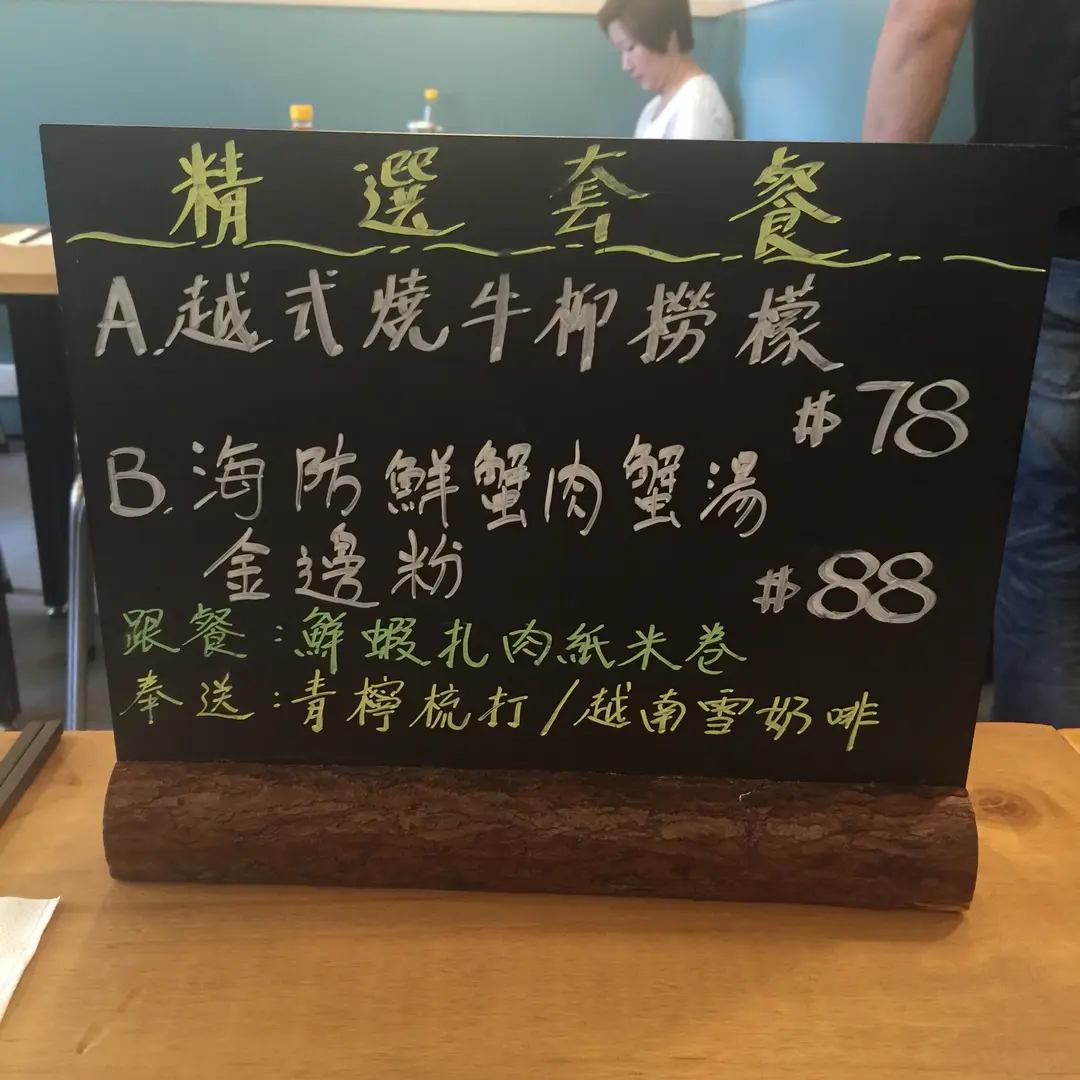 精選套餐
A.越式燒牛柳撈檬
$78
B.海防鮮蟹肉蟹湯
金邊粉
$88
跟餐：鮮蝦扎肉紙米卷
奉送：青檸梳打/越南雪奶啡